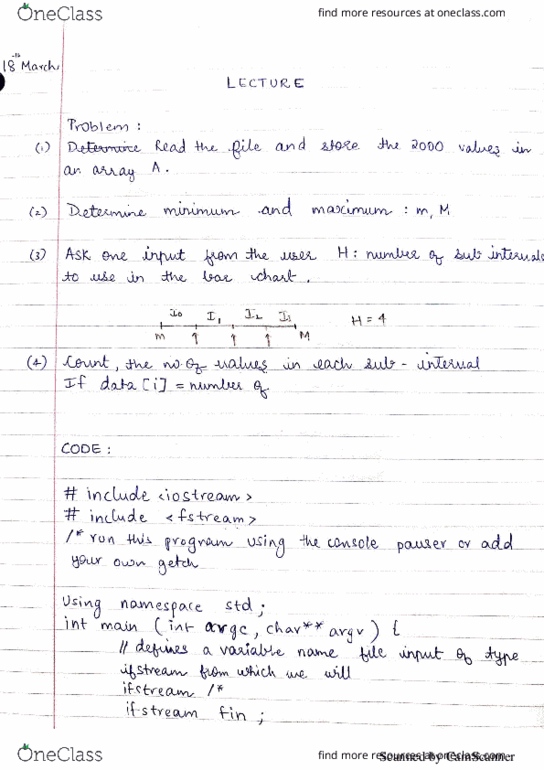 OneClass
find more resources at oneclass.com
18th March,
LECTURE
Problem :
(1) Determine Read the file and store the 2000 values in
an array A.
(2) Determine minimum and maximum : m, M
(3) Ask one input from the user H : number of sub intervals
to use in the bar chart.
I0 I1 I2 I3 H = 4
m M
(4) Count, the no of values in each sub - interval
If data [i] = number of
CODE :
# include <iostream>
# include <fstream>
/* run this program using the console pauser or add
your own getch
Using namespace std ;
int main (int argc, char** argv) {
// defines a variable name file input of type
ifstream from which we will
ifstream /*
ifstream fin ;
OneClass
find more resources at oneclass.com
Scanned by CamScanner